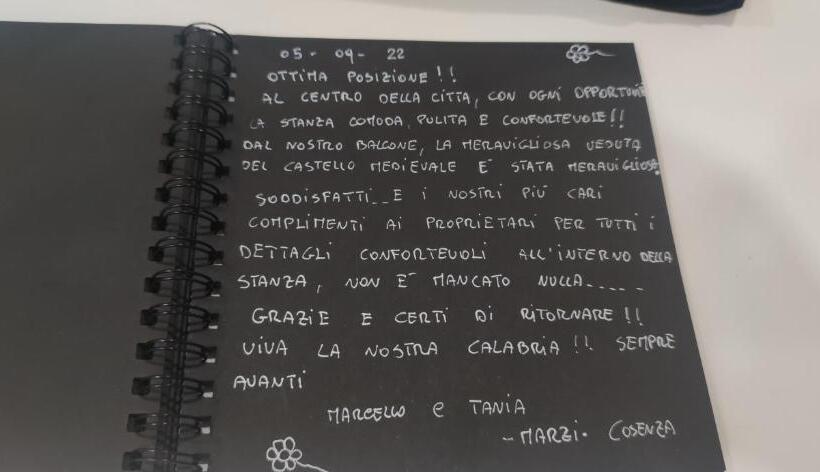 05 - 09 - 22
OTTIMA POSIZIONE!!
AL CENTRO DELLA CITTA, CON OGNI OPPORTUNITÀ
LA STANZA COMODA, PULITA E CONFORTEVOLE!!
DAL NOSTRO BALCONE, LA MERAVIGLIOSA VEDUTA
DEL CASTELLO MEDIEVALE E' STATA MERAVIGLIOSA.
SODDISFATTI__E I NOSTRI PIÙ CARI
COMPLIMENTI AI PROPRIETARI PER TUTTI I
DETTAGLI CONFORTEVOLI ALL'INTERNO DELLA
STANZA, NON E' MANCATO NULLA_____
GRAZIE E CERTI DI RITORNARE!!
VIVA LA NOSTRA CALABRIA!! SEMPRE
AVANTI
MARCELLO e TANIA
- MARZI. COSENZA